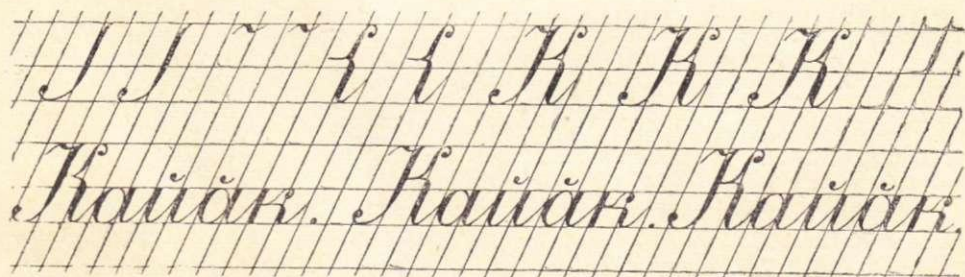 К К К
Кайӑк. Кайӑк. Кайӑк.